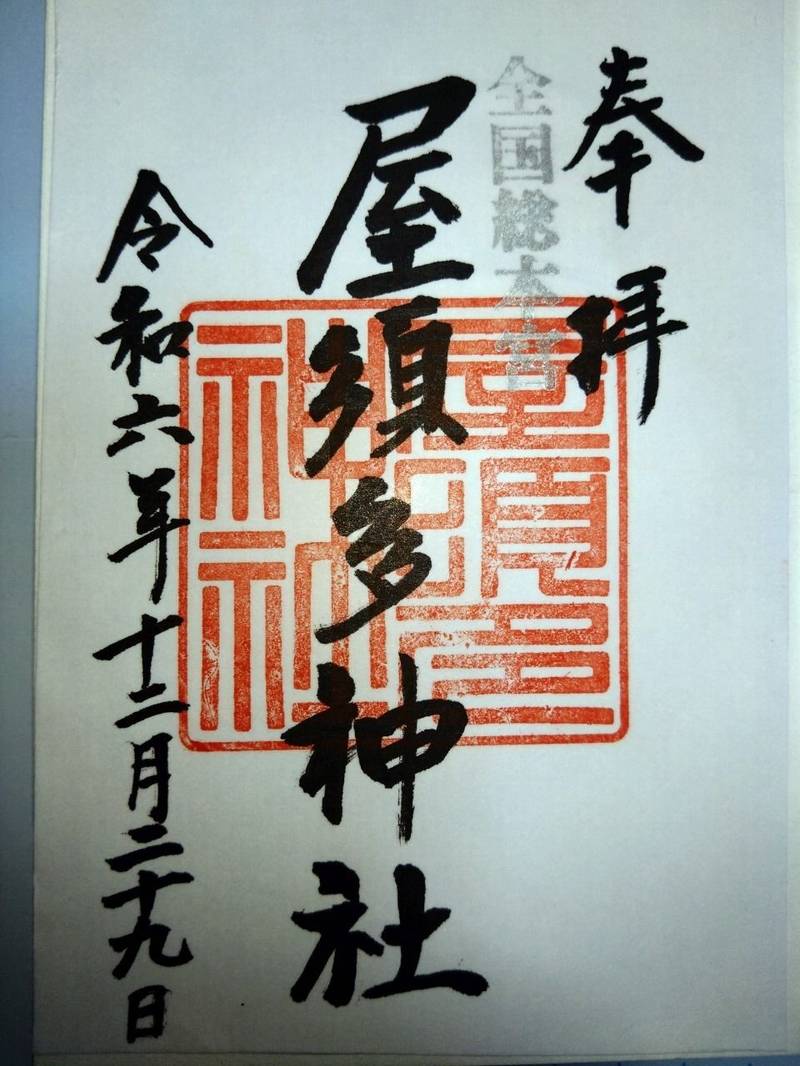 奉拝
全国総本宮
屋須多神社
令和六年十二月二十九日